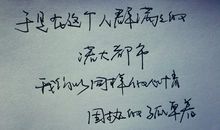 于是在这个人群潮涌的
浩大都市
我们以同样的心情
固执的孤单着